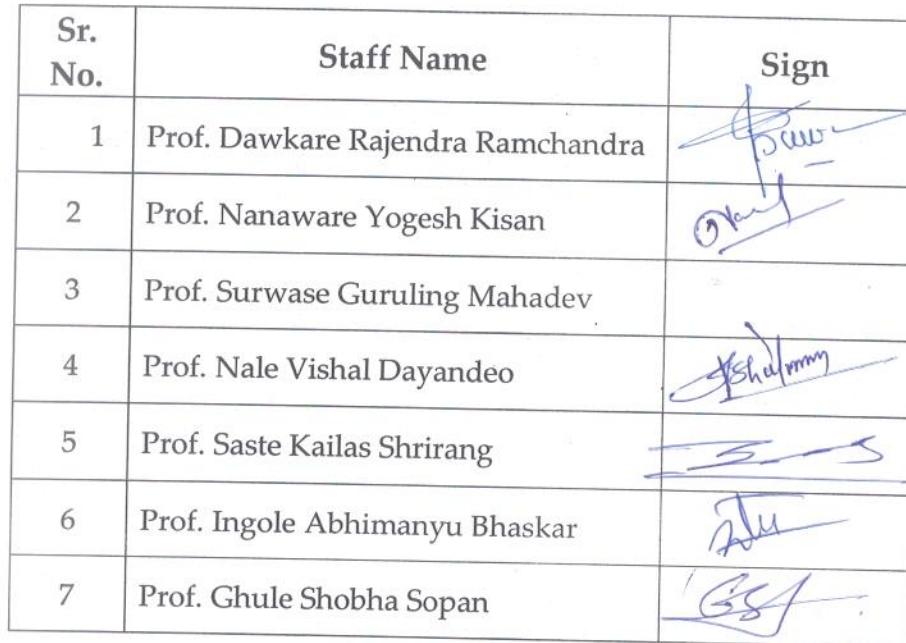 Sr. No. Staff Name Sign
1 Prof. Dawkare Rajendra Ramchandra
2 Prof. Nanaware Yogesh Kisan
3 Prof. Surwase Guruling Mahadev
4 Prof. Nale Vishal Dayandeo
5 Prof. Saste Kailas Shrirang
6 Prof. Ingole Abhimanyu Bhaskar
7 Prof. Ghule Shobha Sopan